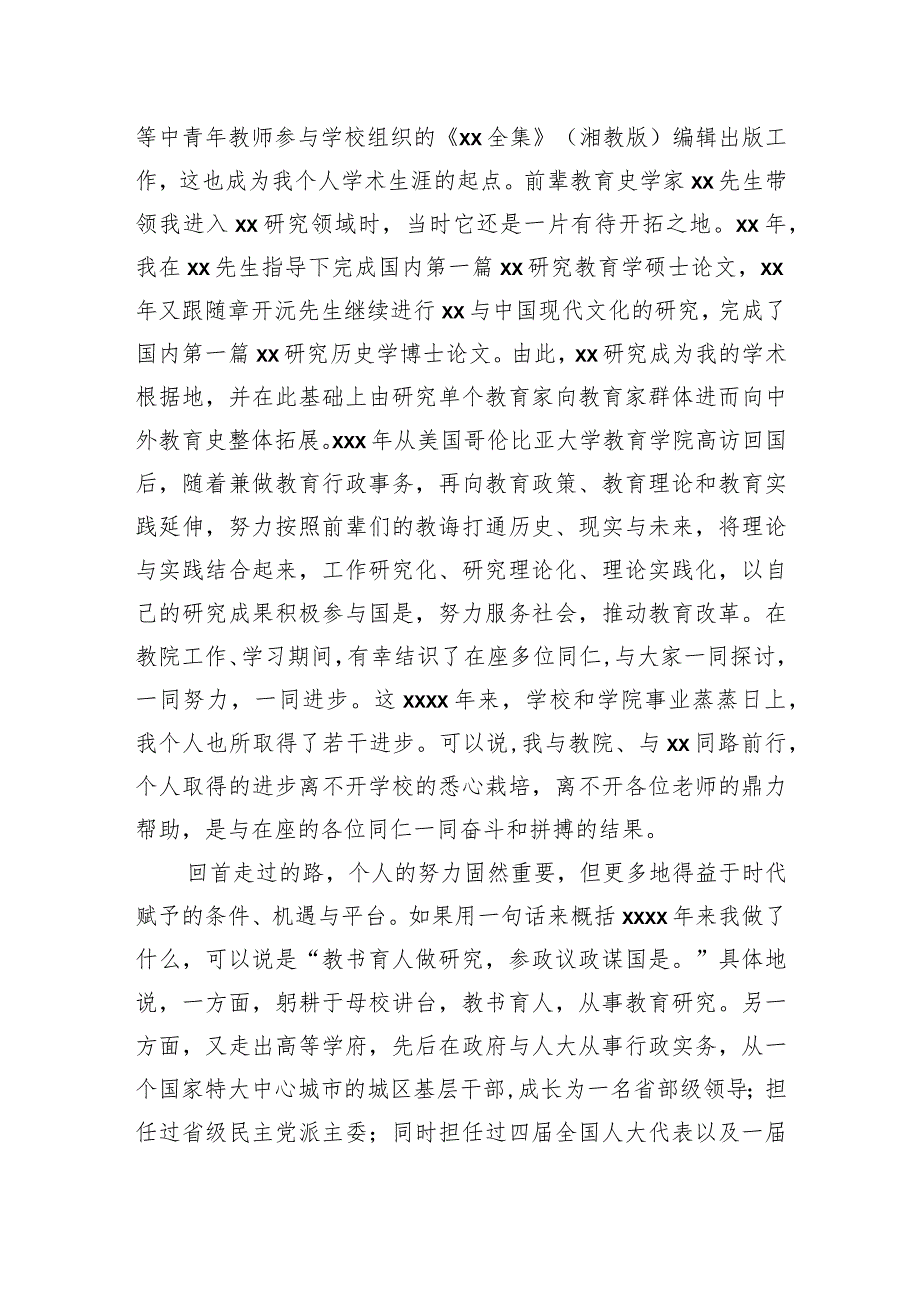 等中青年教师参与学校组织的《xx全集》（湘教版）编辑出版工
作，这也成为我个人学术生涯的起点。前辈教育史学家xx先生带
领我进入xx研究领域时，当时它还是一片有待开拓之地。xx年，
我在xx先生指导下完成国内第一篇xx研究教育学硕士论文，xx
年又跟随章开沅先生继续进行xx与中国现代文化的研究，完成了
国内第一篇xx研究历史学博士论文。由此，xx研究成为我的学术
根据地，并在此基础上由研究单个教育家向教育家群体进而向中
外教育史整体拓展。xxx年从美国哥伦比亚大学教育学院高访回国
后，随着兼做教育行政事务，再向教育政策、教育理论和教育实
践延伸，努力按照前辈们的教诲打通历史、现实与未来，将理论
与实践结合起来，工作研究化、研究理论化、理论实践化，以自
己的研究成果积极参与国是，努力服务社会，推动教育改革。在
教院工作、学习期间，有幸结识了在座多位同仁,与大家一同探讨，
一同努力，一同进步。这xxxx年来，学校和学院事业蒸蒸日上，
我个人也所取得了若干进步。可以说,我与教院、与xx同路前行，
个人取得的进步离不开学校的悉心栽培，离不开各位老师的鼎力
帮助，是与在座的各位同仁一同奋斗和拼搏的结果。
回首走过的路，个人的努力固然重要，但更多地得益于时代
赋予的条件、机遇与平台。如果用一句话来概括xxxx年来我做了
什么，可以说是“教书育人做研究，参政议政谋国是。”具体地
说，一方面，躬耕于母校讲台，教书育人，从事教育研究。另一
方面，又走出高等学府，先后在政府与人大从事行政实务，从一
个国家特大中心城市的城区基层干部,成长为一名省部级领导；担
任过省级民主党派主委；同时担任过四届全国人大代表以及一届